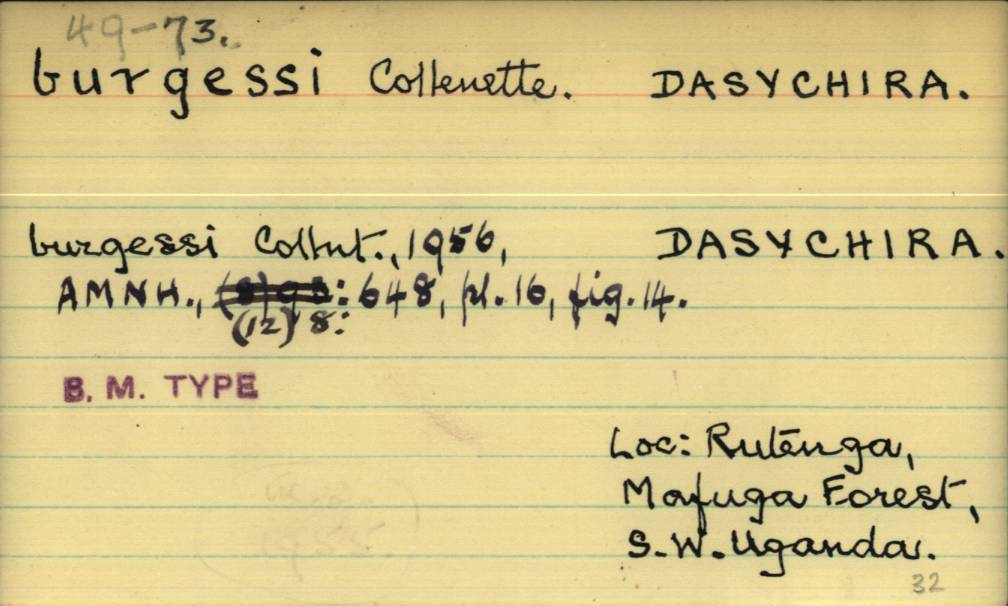 49-73.
burgessi Collenette. DASYCHIRA.
burgessi Collnt., 1956, DASYCHIRA.
AMNH., : 648, pl. 16, fig. 14.
(12) 8:
B. M. TYPE
Loc: Rutenga,
Mafuga Forest,
S.W. Uganda.
32